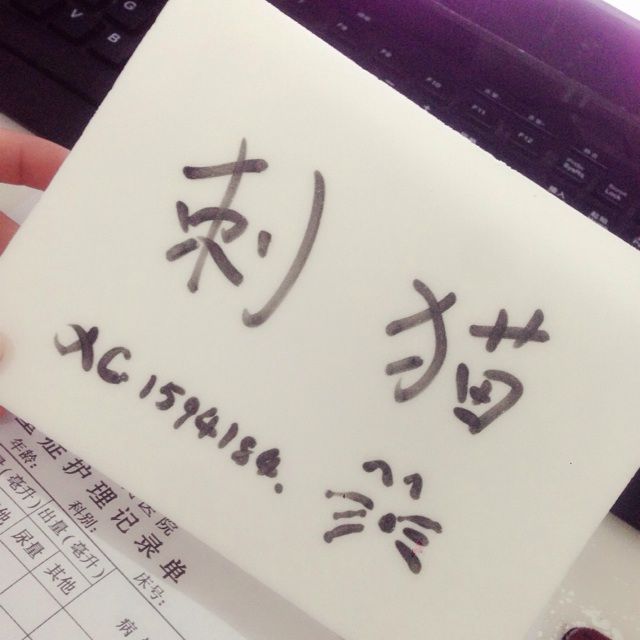 刺猫
XC1594184.
重症护理记录单
医院
年龄:
科别:
床号:
(毫升)
出量(毫升)
尿量
其他
他
病